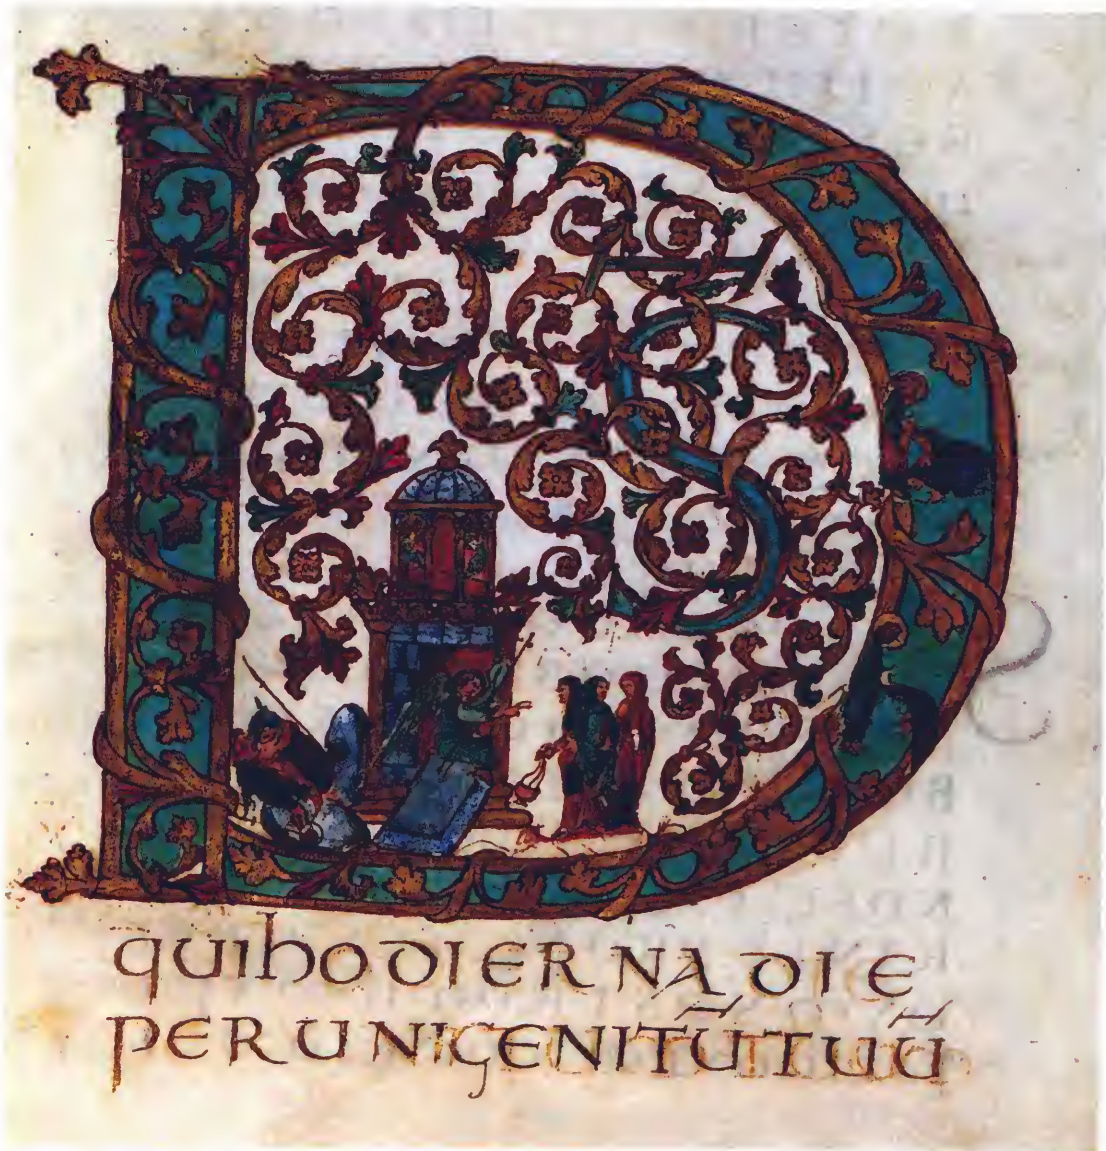 D̄S
quihodierna die
perunigenitūtuū